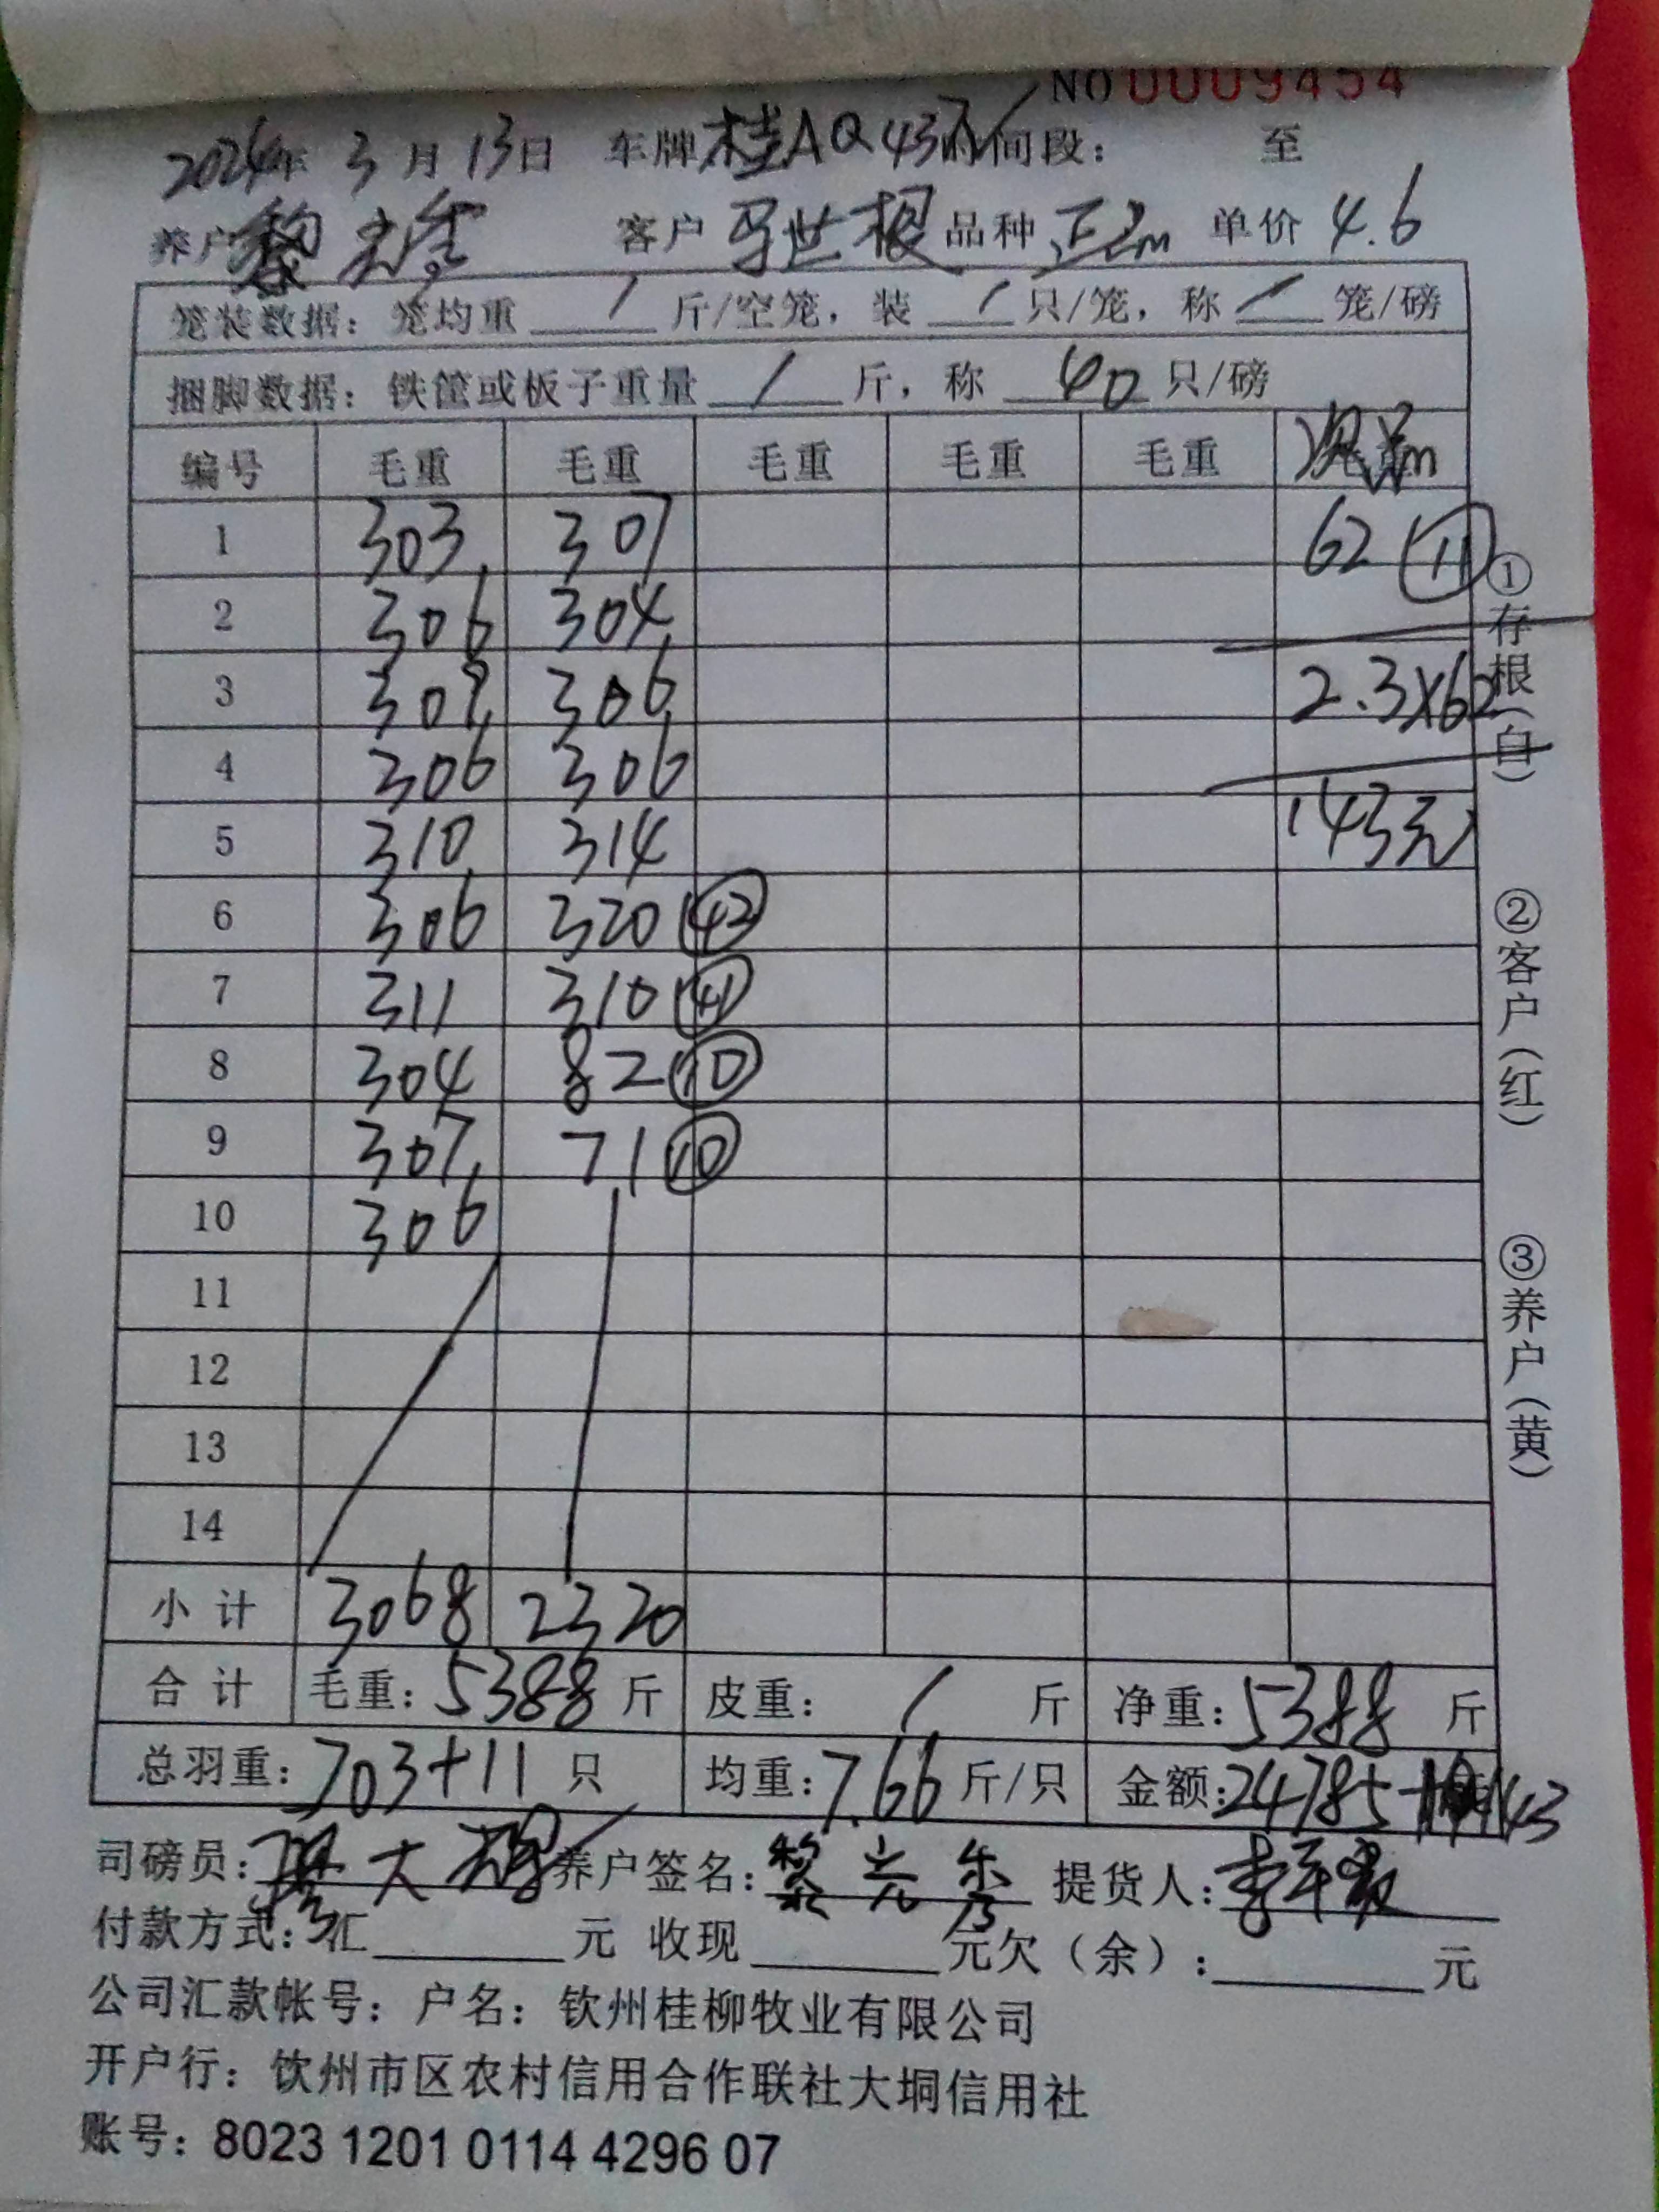 NO 0009454
2024年 3 月 13日 车牌 桂AQ43 时间段： 至
养户 黎 客户 世根 品种 正 单价 4.6
笼装数据：笼均重 / 斤/空笼，装 / 只/笼，称 / 笼/磅
捆脚数据：铁筐或板子重量 / 斤，称 40 只/磅
编号 毛重 毛重 毛重 毛重 毛重
1 303 307 62 (11)
2 306 304
3 309 306 2.3×62
4 306 306
5 310 314 143元
6 306 320 (42)
7 311 310 (41)
8 304 82 (10)
9 307 71 (10)
10 306
11
12
13
14
小计 3068 2320
合计 毛重：5388 斤 皮重： / 斤 净重：5388 斤
总羽重：703+11 只 均重：7.66 斤/只 金额：24785+143
司磅员： 大 养户签名：黎 提货人：李
付款方式：汇 元 收现 元欠（余）： 元
公司汇款帐号：户名：钦州桂柳牧业有限公司
开户行：钦州市区农村信用合作联社大垌信用社
账号：8023 1201 0114 4296 07
①存根（白）
②客户（红）
③养户（黄）